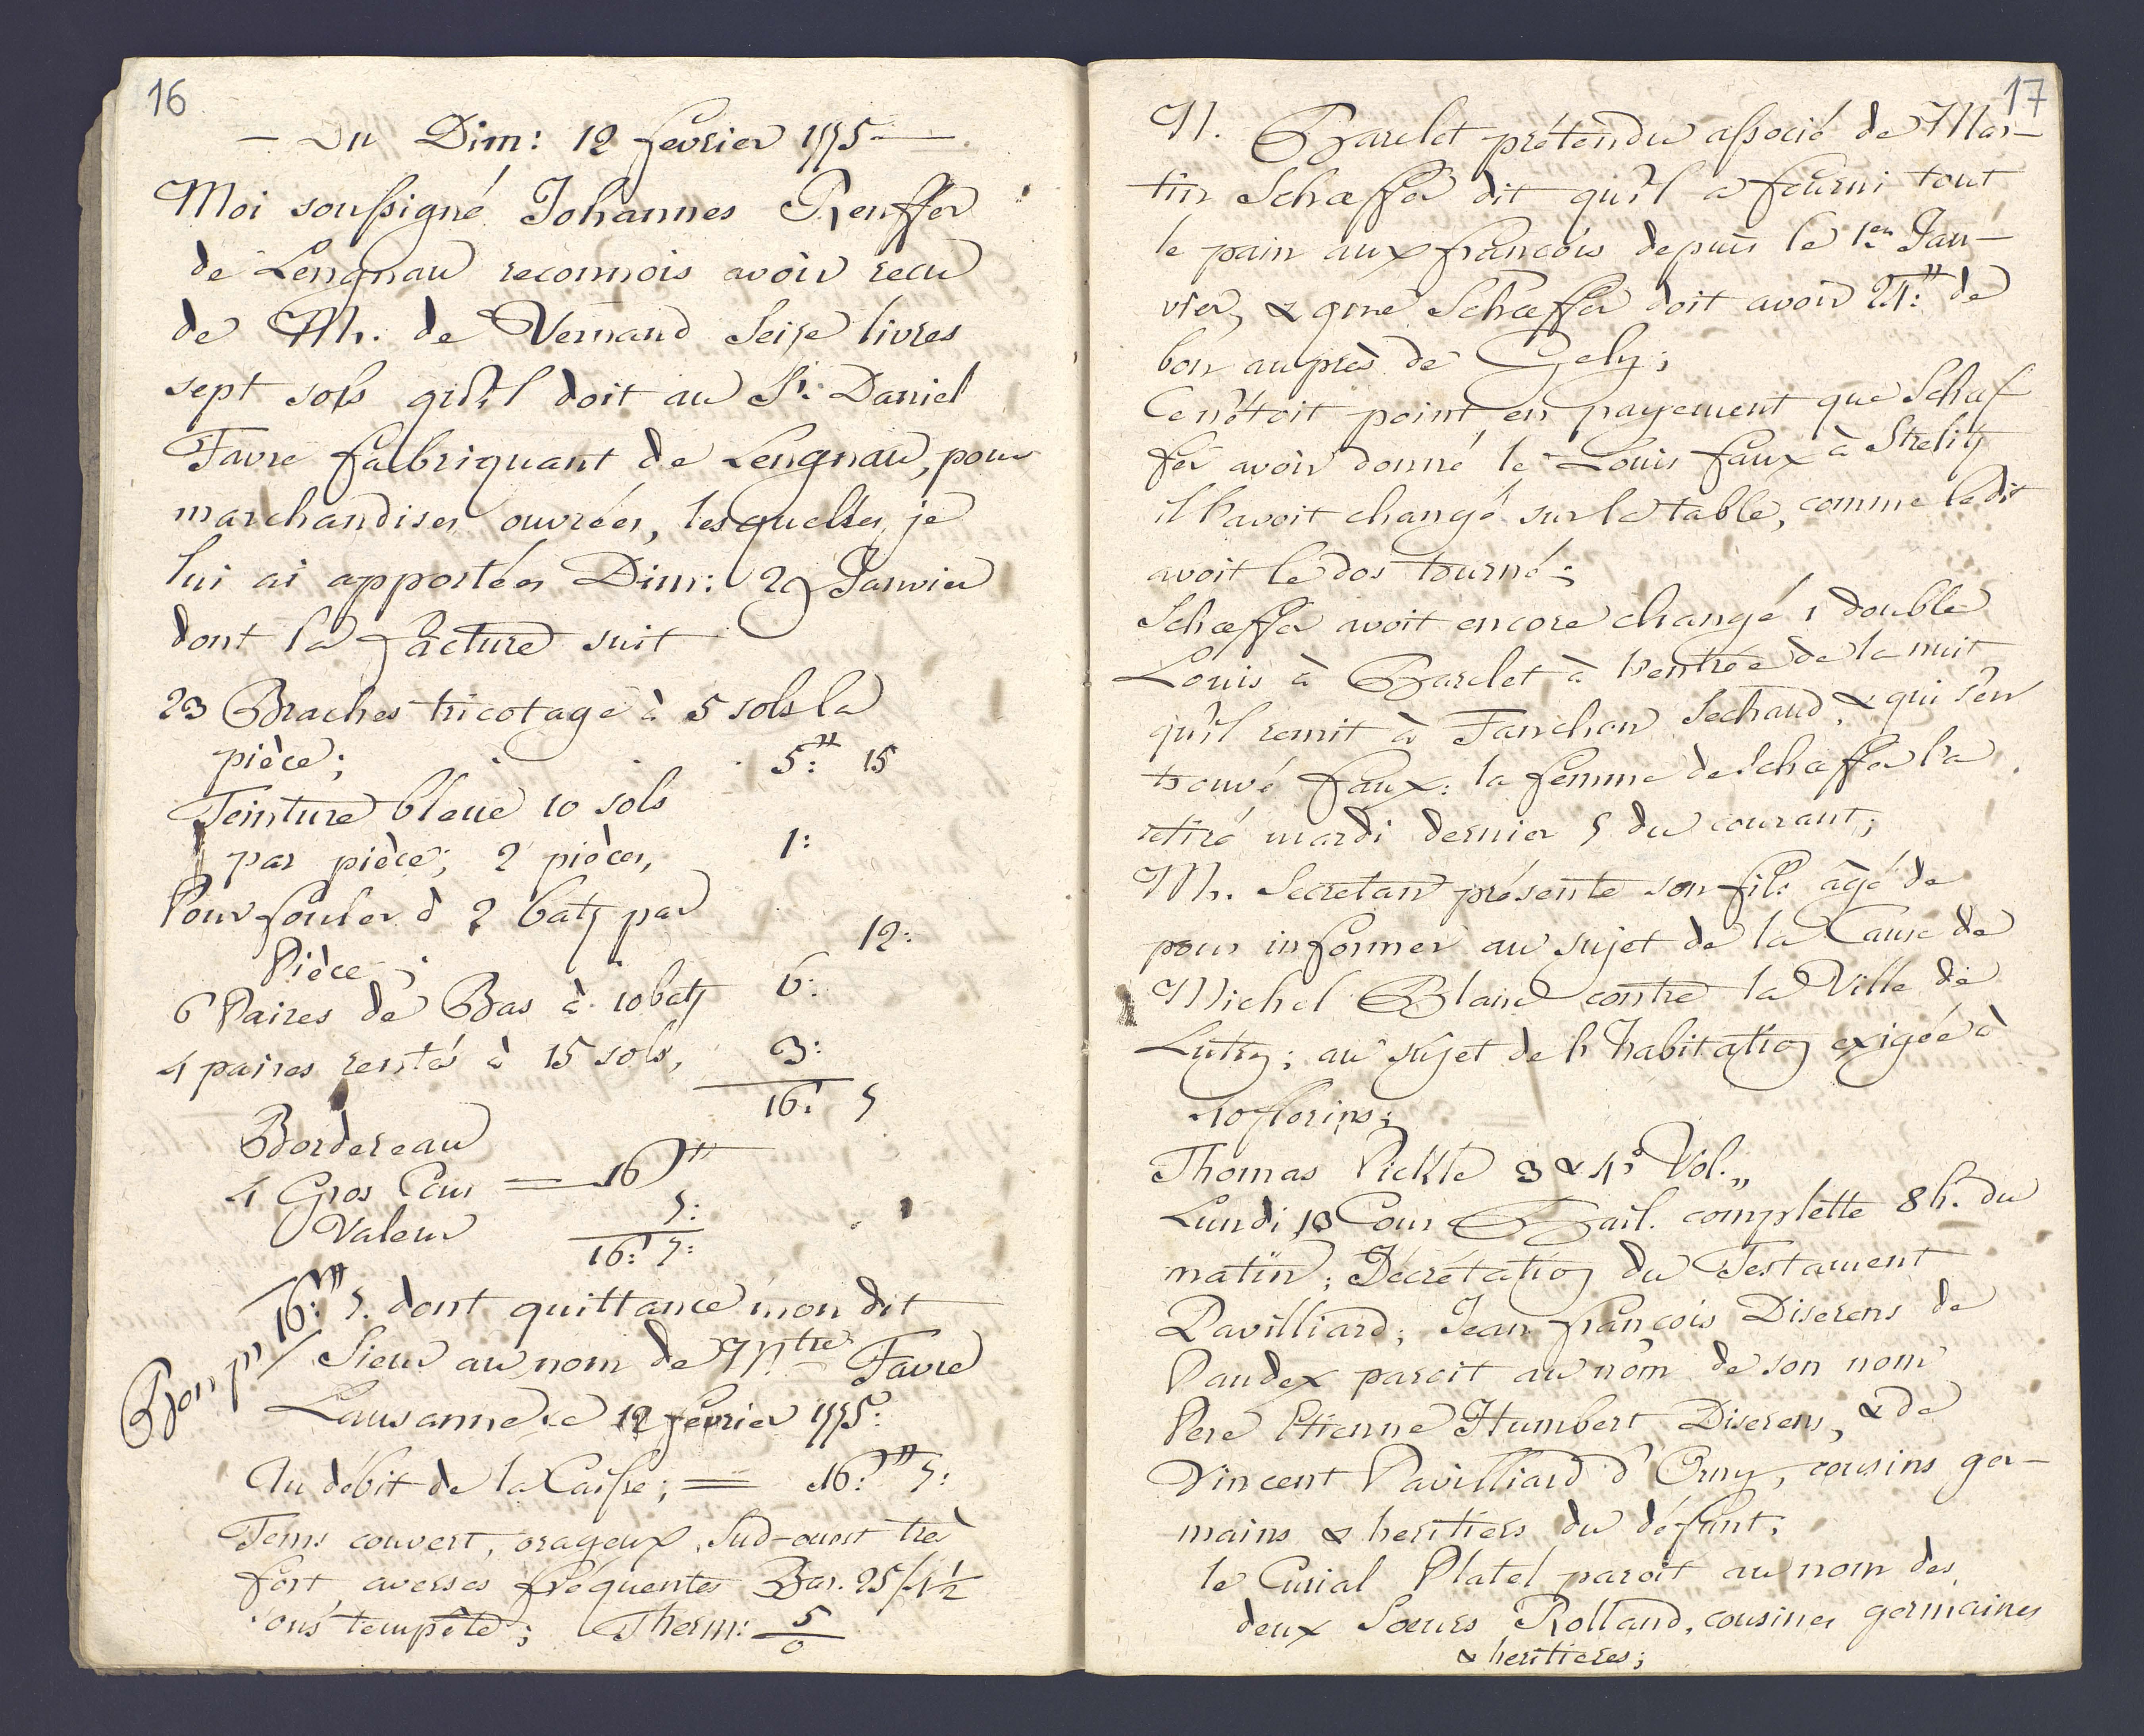 16
— Du Dim: 12 fevrier 1775 —
Moi soussigné Johannes Renffer
de Lengnau reconnois avoir recu
de Mr. de Vernand Seize livres
sept sols qu'il doit au Sr. Daniel
Favre fabriquant de Lengnau, pour
marchandises ouvrées, lesquelles je
lui ai apportées Dim: 29 Janvier
dont la facture suit
23 Braches tricotage à 5 sols la
pièce; . . . 5: 15
Teinture bleue 10 sols
par pièce; 2 pièces, 1:
Pour fouler à 2 batz par
Pièce; . . 12:
6 Paires de Bas à 10 batz 6:
4 paires rentés à 15 sols, 3:
16: 7
Bordereau
4 Gros Ecus = 16
Valeur 7:
16: 7:
Bon pr 16: 7. dont quittance mon dit
Sieur au nom de Mtre Favre
Lausanne ce 12 fevrier 1775:
Au débit de la Caisse; = 16: 7:
Tems couvert, orageux, Sud-ouest très
fort, averses fréquentes Bar. 25/4½
tempête; Therm: 5/0
17
N. Barclet prétendu associé de Mar-
tin Schæffer dit qu'il a fourni tout
le pain aux francois depuis le 1er Jan-
vier, & que Schæffer doit avoir de
bon auprès de Gely;
Ce n'étoit point en payement que Schæf
fer avoir donné le Louis faux à Strelitz
il l'avoit changé sur la table, comme ledit
avoit le dos tourné;
Schæffer avoit encore changé 1 double
Louis à Barclet à l'entrée de la nuit
qu'il remit à Fanchon Sechaud, & qui s'en
trouvé faux: la femme de Schæffer l'a
retiré mardi dernier 7 du courant;
Mr. Secretan présente son fils âgé de
pour informer au sujet de la Cause de
Michel Blanc contre la Ville de
Lutry; au sujet de l'habitation exigée à
10 florins;
Thomas Pickle 3 & 4e Vol.,,
Lundi 13 Cour Bail. complette 8 h. du
matin; Décrétation du Testament
Pavilliard; Jean François Diserens de
Paudex paroit au nom de son nom
Pere Etienne Humbert Diserens, & de
Vincent Pavilliard d'Orny, cousins ger-
mains & heritiers du défunt;
le Curial Platel paroit au nom des
deux Sœurs Rolland, cousines germaines
& heritieres;